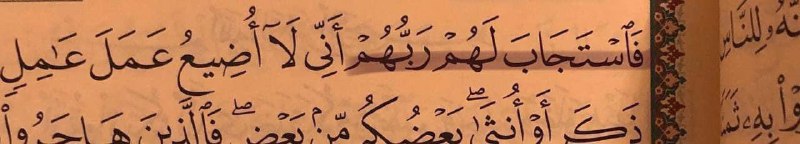 فَٱسۡتَجَابَ لَهُمۡ رَبُّهُمۡ أَنِّي لَآ أُضِيعُ عَمَلَ عَٰمِلٖ
ذَكَرٍ أَوۡ أُنثَىٰۖ بَعۡضُكُم مِّنۢ بَعۡضٖۖ فَٱلَّذِينَ هَاجَرُواْ
لِلنَّاسِ
بِهِۦ